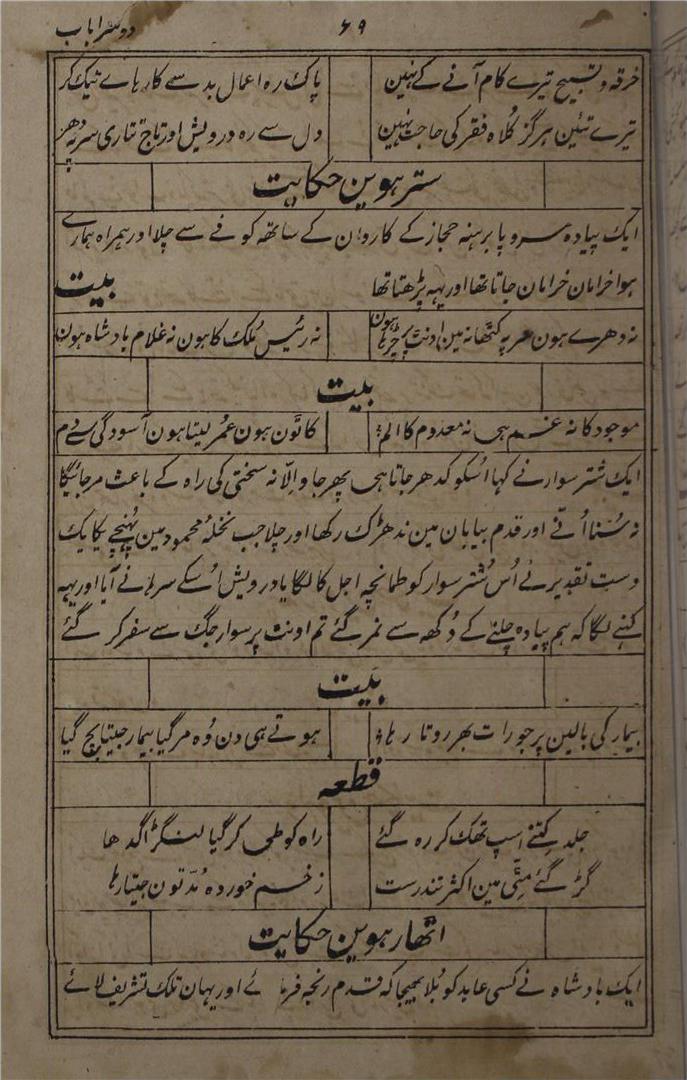 ۶۹ دوسرا باب
خرقہ و تسبیح تیرے کام آنے کے نہین پاک رہ اعمال بد سے کار ہاے نیک کر
تیرے تئین ہرگز کُلاہ فقر کی حاجت نہین دل سے رہ درویش اور تاج تتاری سر پہ دھر
سترھوین حکایت
ایک پیادہ سر و پا برہنہ حجاز کے کاروان کے ساتھ کوفے سے چلا اور ہمراہ ہمارے
ہوا خرامان خرامان جاتا تھا اور یہہ پڑھتا تھا بیت
نہ دھرے ہون سر پہ کٹھا نہ مین اونٹ پر چڑھا ہون نہ رئیس مُلک کا ہون نہ غلام بادشاہ ہون
بیت
موجود کا نہ غم ہی نہ معدوم کا الم کاٹون ہون عمر لیتا ہون آسودگی سے دم
ایک شتر سوار نے کہا اُسکو کدھر جاتا ہی پھر جا والّا نہ سختی کی راہ کے باعث مر جائیگا
نہ سُنا اُنّے اور قدم بیابان مین ندھڑک رکھا اور چلا جب نخلۂ محمود مین پُہنچے یکایک
دست تقدیر نے اُس شُتر سوار کو طمانچہ اجل کا لگایا درویش اُسکے سرہانے آیا اور یہہ
کہنے لگا کہ ہم پیادہ چلنے کے دُکھہ سے نمر گئے تم اونٹ پر سوار جگ سے سفر کر گئے
بیت
بیمار کی بالین پر جو رات بھر روتا رہا ہوتے ہی دن وُہ مر گیا بیمار جیتا بچ گیا
قطعہ
جلد کِتنے اسپ تھک کر رہ گئے راہ کو طی کر گیا لنگڑا گدھا
گڑ گئے مٹّی مین اکثر تندرست زخم خوردہ مُدّتون جیتا رہا
اٹھارھوین حکایت
ایک بادشاہ نے کسی عابد کو بُلا بھیجا کہ قدم رنجہ فرمائے اور یہان تلک تشریف لائے